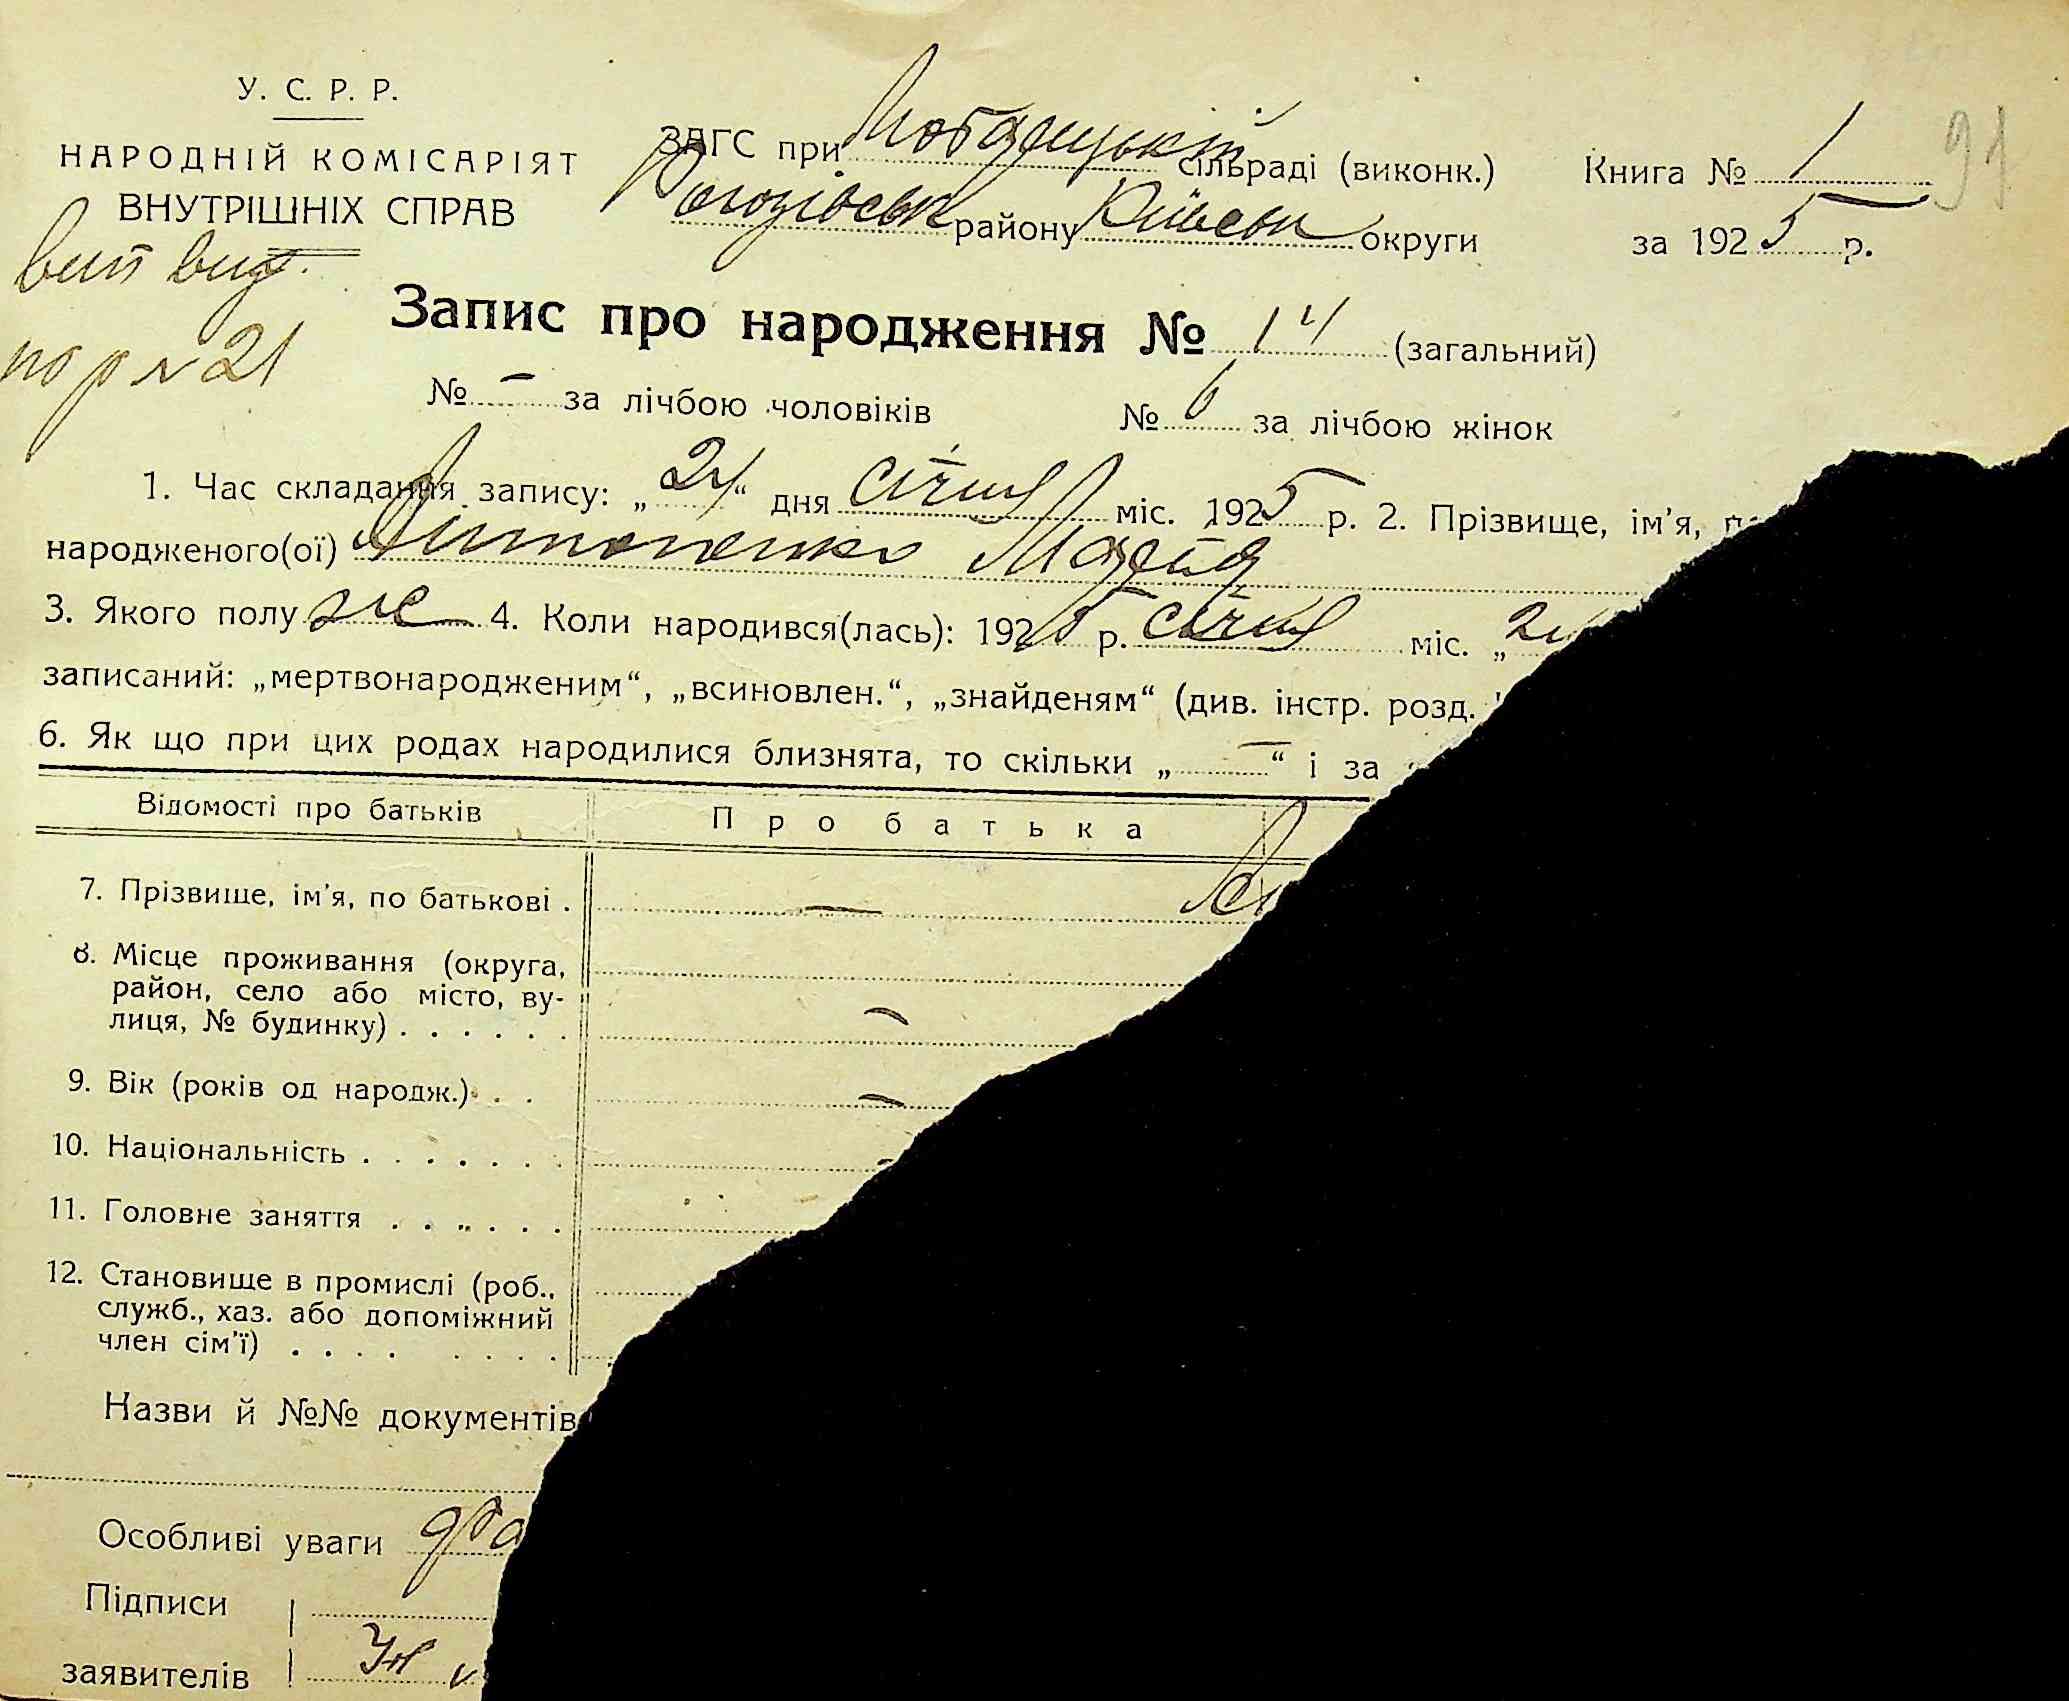 У. С. Р. Р.
НАРОДНІЙ КОМІСАРІЯТ
ВНУТРІШНІХ СПРАВ
ЗАГС при сільраді (виконк.)
Рогозівськ району Київськ округи
Книга № 1
91
за 1925 р.
вип вид.
по р № 21
Запис про народження № 14 (загальний)
№ — за лічбою чоловіків № 6 за лічбою жінок
1. Час складання запису: „24“ дня січня міс. 1925 р. 2. Прізвище, ім'я,
народженого(ої) Антоненко Марія
3. Якого полу ж 4. Коли народився(лась): 1925 р. січня міс. „2
записаний: „мертвонародженим“, „всиновлен.“, „знайденям“ (див. інстр. розд.
6. Як що при цих родах народилися близнята, то скільки „—“ і за
Відомості про батьків Про батька
7. Прізвище, ім'я, по батькові . —
8. Місце проживання (округа,
район, село або місто, ву-
лиця, № будинку) . . . . . . —
9. Вік (років од народж.) . . —
10. Національність . . . . . . .
11. Головне заняття . . . . . .
12. Становище в промислі (роб.,
служб., хаз. або допоміжний
член сім'ї) . . . . . . . .
Назви й №№ документів
Особливі уваги
Підписи
заявителів